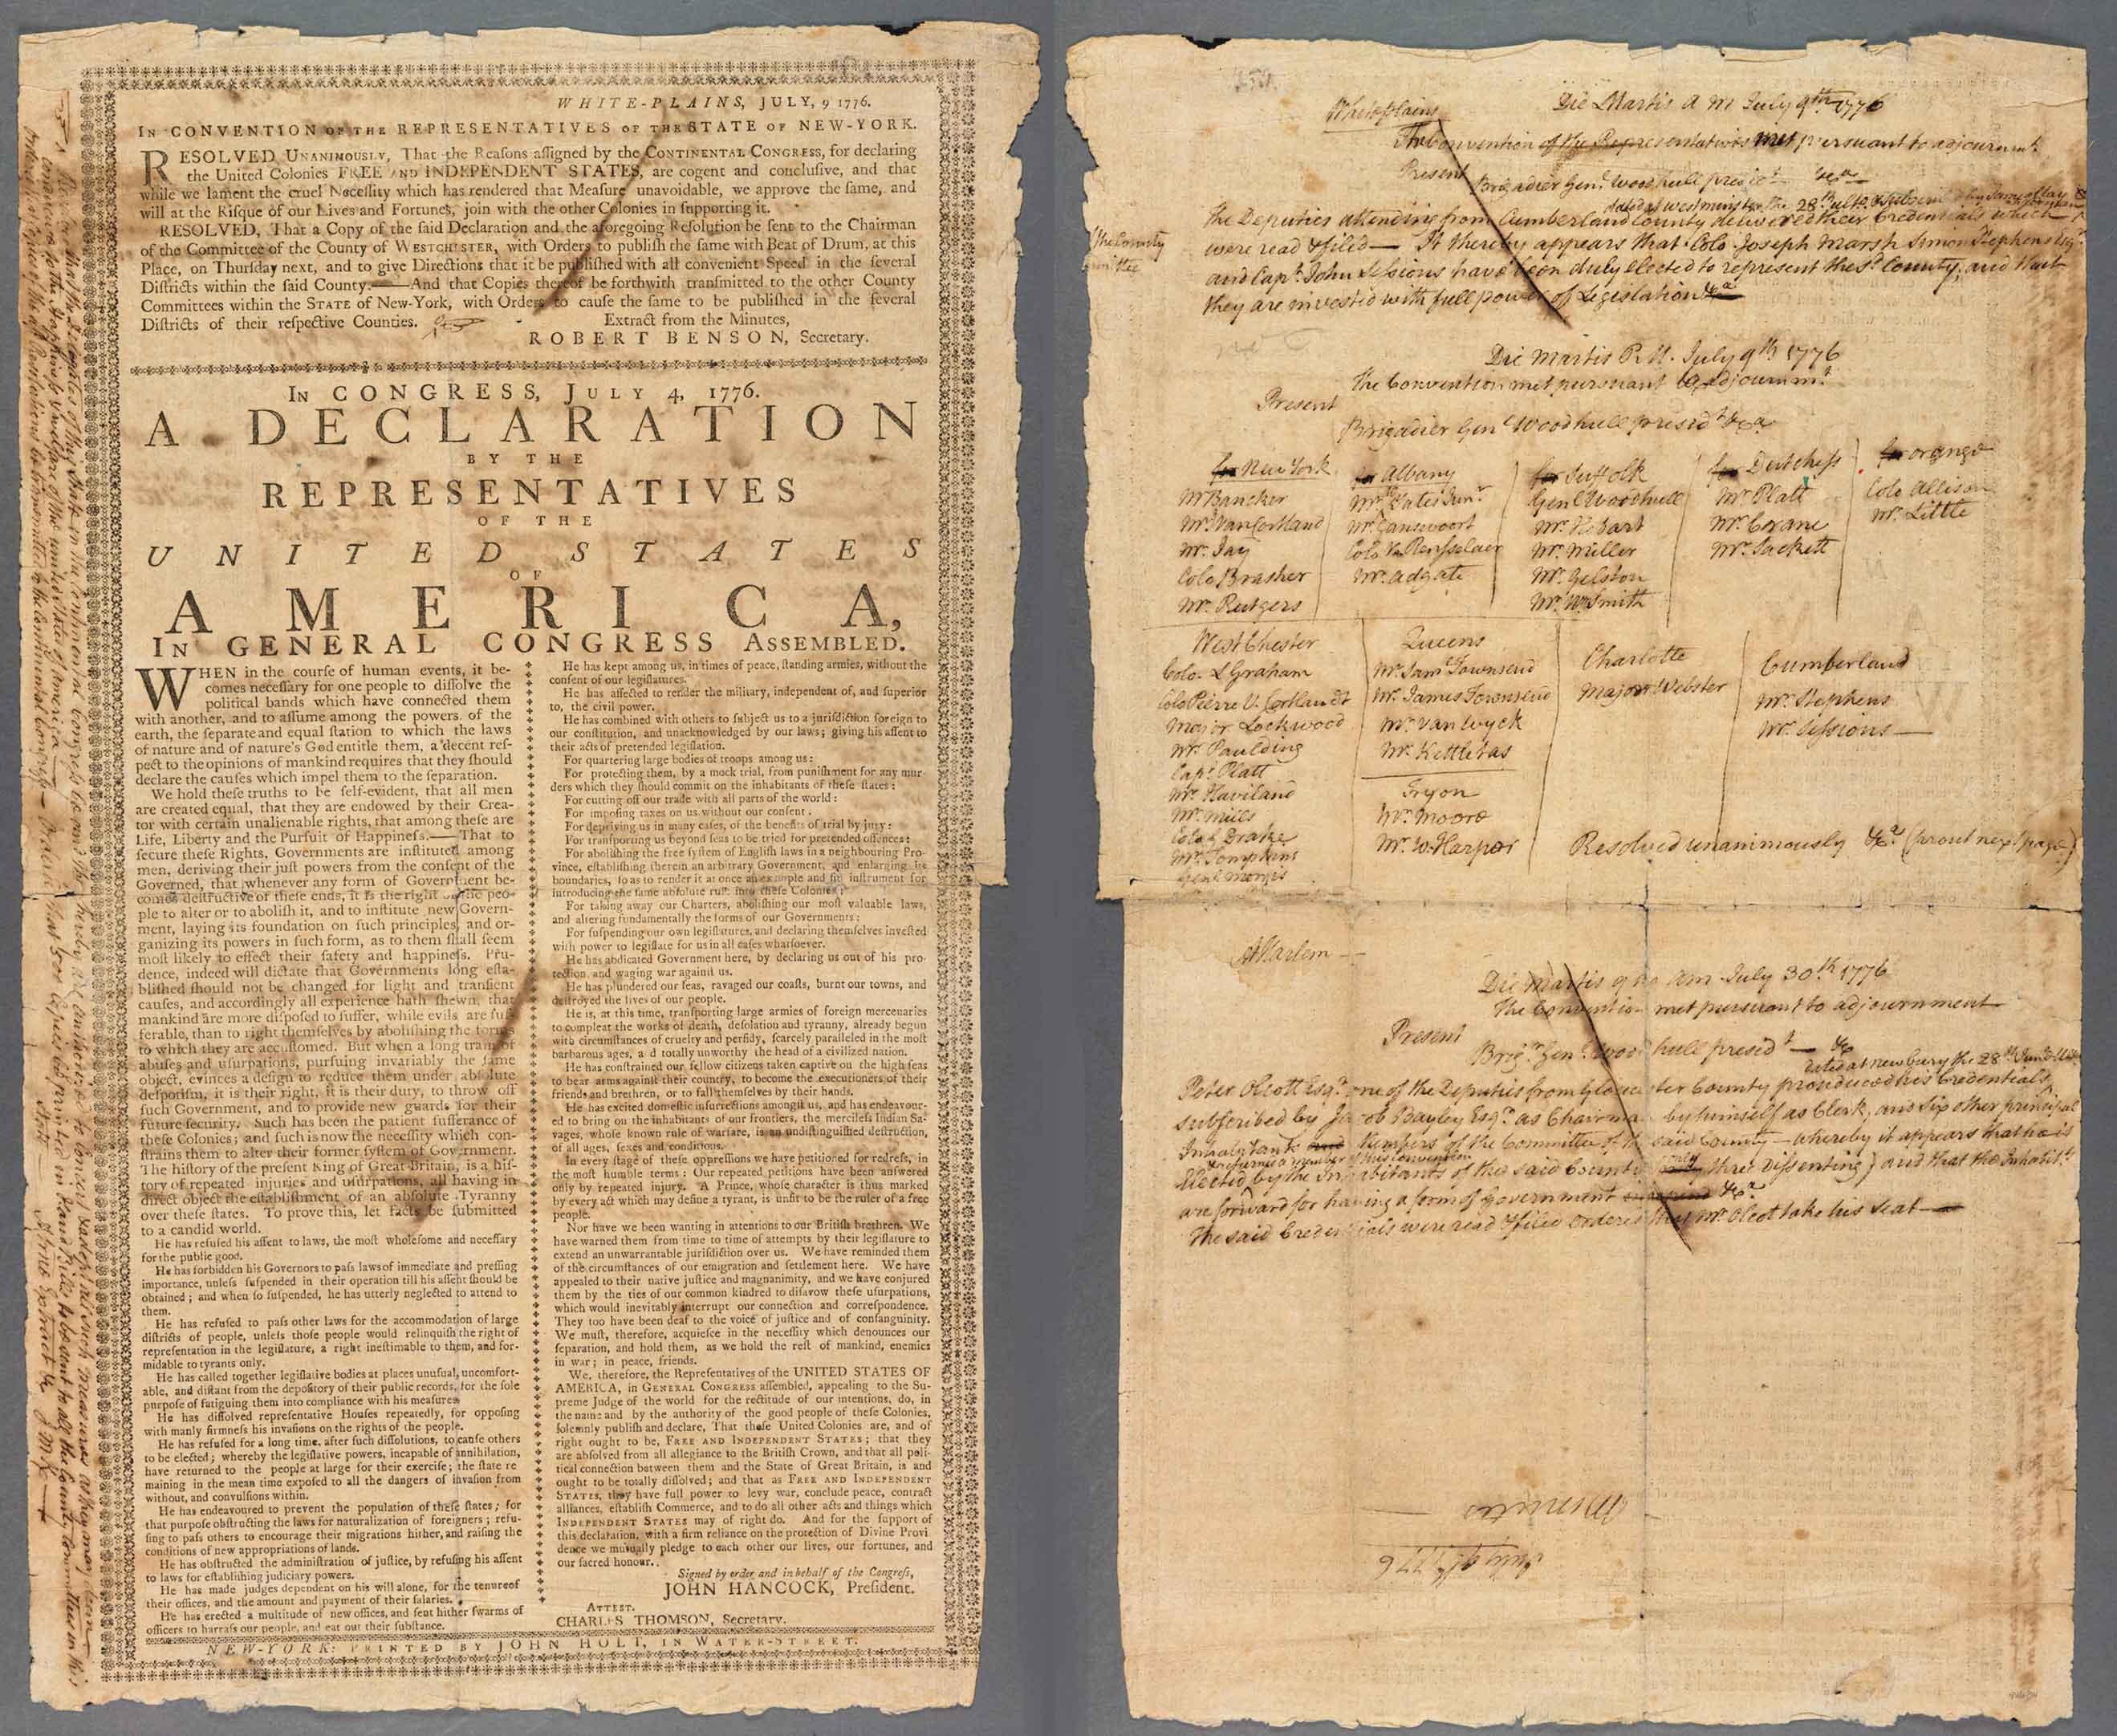 WHITE-PLAINS, JULY, 9 1776.
IN CONVENTION OF THE REPRESENTATIVES OF THE STATE OF NEW-YORK.
RESOLVED UNANIMOUSLY, That the Reasons aſſigned by the CONTINENTAL CONGRESS, for declaring
the United Colonies FREE AND INDEPENDENT STATES, are cogent and concluſive, and that
while we lament the cruel Neceſſity which has rendered that Meaſure unavoidable, we approve the ſame, and
will at the Riſque of our Lives and Fortunes, join with the other Colonies in ſupporting it.
RESOLVED, That a Copy of the ſaid Declaration and the aforegoing Reſolution be ſent to the Chairman
of the Committee of the County of WESTCHESTER, with Orders to publiſh the ſame with Beat of Drum, at this
Place, on Thurſday next, and to give Directions that it be publiſhed with all convenient Speed in the ſeveral
Diſtricts within the ſaid County.——And that Copies thereof be forthwith tranſmitted to the other County
Committees within the STATE of New-York, with Orders to cauſe the ſame to be publiſhed in the ſeveral
Diſtricts of their reſpective Counties.
Extract from the Minutes,
ROBERT BENSON, Secretary.
IN CONGRESS, JULY 4, 1776.
A DECLARATION
BY THE
REPRESENTATIVES
OF THE
UNITED STATES
OF
AMERICA,
IN GENERAL CONGRESS ASSEMBLED.
WHEN in the courſe of human events, it be-
comes neceſſary for one people to diſſolve the
political bands which have connected them
with another, and to aſſume among the powers of the
earth, the ſeparate and equal ſtation to which the laws
of nature and of nature's God entitle them, a decent reſ-
pect to the opinions of mankind requires that they ſhould
declare the cauſes which impel them to the ſeparation.
We hold theſe truths to be ſelf-evident, that all men
are created equal, that they are endowed by their Crea-
tor with certain unalienable rights, that among theſe are
Life, Liberty and the Purſuit of Happineſs.——That to
ſecure theſe Rights, Governments are inſtituted among
men, deriving their juſt powers from the conſent of the
Governed, that whenever any form of Government be-
comes deſtructive of theſe ends, it is the right of the peo-
ple to alter or to aboliſh it, and to inſtitute new Govern-
ment, laying its foundation on ſuch principles, and or-
ganizing its powers in ſuch form, as to them ſhall ſeem
moſt likely to effect their ſafety and happineſs. Pru-
dence, indeed will dictate that Governments long eſta-
bliſhed ſhould not be changed for light and tranſient
cauſes, and accordingly all experience hath ſhewn, that
mankind are more diſpoſed to ſuffer, while evils are ſuf-
ferable, than to right themſelves by aboliſhing the forms
to which they are accuſtomed. But when a long train of
abuſes and uſurpations, purſuing invariably the ſame
object, evinces a deſign to reduce them under abſolute
deſpotiſm, it is their right, it is their duty, to throw off
ſuch Government, and to provide new guards for their
future ſecurity. Such has been the patient ſufferance of
theſe Colonies; and ſuch is now the neceſſity which con-
ſtrains them to alter their former ſyſtem of Government.
The hiſtory of the preſent King of Great-Britain, is a hiſ-
tory of repeated injuries and uſurpations, all having in
direct object the eſtabliſhment of an abſolute Tyranny
over theſe ſtates. To prove this, let facts be ſubmitted
to a candid world.
He has refuſed his aſſent to laws, the moſt wholeſome and neceſſary
for the public good.
He has forbidden his Governors to paſs laws of immediate and preſſing
importance, unleſs ſuſpended in their operation till his aſſent ſhould be
obtained; and when ſo ſuſpended, he has utterly neglected to attend to
them.
He has refuſed to paſs other laws for the accommodation of large
diſtricts of people, unleſs thoſe people would relinquiſh the right of
repreſentation in the legiſlature, a right ineſtimable to them, and for-
midable to tyrants only.
He has called together legiſlative bodies at places unuſual, uncomfort-
able, and diſtant from the depoſitory of their public records, for the ſole
purpoſe of fatiguing them into compliance with his meaſures.
He has diſſolved repreſentative Houſes repeatedly, for oppoſing
with manly firmneſs his invaſions on the rights of the people.
He has refuſed for a long time, after ſuch diſſolutions, to cauſe others
to be elected; whereby the legiſlative powers, incapable of annihilation,
have returned to the people at large for their exerciſe; the ſtate re
maining in the mean time expoſed to all the dangers of invaſion from
without, and convulſions within.
He has endeavoured to prevent the population of theſe ſtates; for
that purpoſe obſtructing the laws for naturalization of foreigners; refu-
ſing to paſs others to encourage their migrations hither, and raiſing the
conditions of new appropriations of lands.
He has obſtructed the adminiſtration of juſtice, by refuſing his aſſent
to laws for eſtabliſhing judiciary powers.
He has made judges dependent on his will alone, for the tenure of
their offices, and the amount and payment of their ſalaries.
He has erected a multitude of new offices, and ſent hither ſwarms of
officers to harraſs our people, and eat out their ſubſtance.
He has kept among us, in times of peace, ſtanding armies, without the
conſent of our legiſlatures.
He has affected to render the military, independent of, and ſuperior
to, the civil power.
He has combined with others to ſubject us to a juriſdiction foreign to
our conſtitution, and unacknowledged by our laws; giving his aſſent to
their acts of pretended legiſlation.
For quartering large bodies of troops among us:
For protecting them, by a mock trial, from puniſhment for any mur-
ders which they ſhould commit on the inhabitants of theſe ſtates:
For cutting off our trade with all parts of the world:
For impoſing taxes on us without our conſent.
For depriving us in many caſes, of the benefits of trial by jury:
For tranſporting us beyond ſeas to be tried for pretended offences:
For aboliſhing the free ſyſtem of Engliſh laws in a neighbouring Pro-
vince, eſtabliſhing therein an arbitrary Government, and enlarging its
boundaries, ſo as to render it at once an example and fit inſtrument for
introducing the ſame abſolute rule into theſe Colonies:
For taking away our Charters, aboliſhing our moſt valuable laws,
and altering fundamentally the forms of our Governments:
For ſuſpending our own legiſlatures, and declaring themſelves inveſted
with power to legiſlate for us in all caſes whatſoever.
He has abdicated Government here, by declaring us out of his pro-
tection, and waging war againſt us.
He has plundered our ſeas, ravaged our coaſts, burnt our towns, and
deſtroyed the lives of our people.
He is, at this time, tranſporting large armies of foreign mercenaries
to compleat the works of death, deſolation and tyranny, already begun
with circumſtances of cruelty and perfidy, ſcarcely paralleled in the moſt
barbarous ages, a d totally unworthy the head of a civilized nation.
He has conſtrained our fellow citizens taken captive on the high ſeas
to bear arms againſt their country, to become the executioners of their
friends and brethren, or to fall themſelves by their hands.
He has excited domeſtic inſurrections amongſt us, and has endeavour-
ed to bring on the inhabitants of our frontiers, the mercileſs Indian Sa-
vages, whoſe known rule of warfare, is an undiſtinguiſhed deſtruction,
of all ages, ſexes and conditions.
In every ſtage of theſe oppreſſions we have petitioned for redreſs, in
the moſt humble terms: Our repeated petitions have been anſwered
only by repeated injury. A Prince, whoſe character is thus marked
by every act which may define a tyrant, is unfit to be the ruler of a free
people.
Nor have we been wanting in attentions to our Britiſh brethren. We
have warned them from time to time of attempts by their legiſlature to
extend an unwarrantable juriſdiction over us. We have reminded them
of the circumſtances of our emigration and ſettlement here. We have
appealed to their native juſtice and magnanimity, and we have conjured
them by the ties of our common kindred to diſavow theſe uſurpations,
which would inevitably interrupt our connection and correſpondence.
They too have been deaf to the voice of juſtice and of conſanguinity.
We muſt, therefore, acquieſce in the neceſſity which denounces our
ſeparation, and hold them, as we hold the reſt of mankind, enemies
in war; in peace, friends.
We, therefore, the Repreſentatives of the UNITED STATES OF
AMERICA, in GENERAL CONGRESS aſſembled, appealing to the Su-
preme Judge of the world for the rectitude of our intentions, do, in
the name and by the authority of the good people of theſe Colonies,
ſolemnly publiſh and declare, That theſe United Colonies are, and of
right ought to be, FREE AND INDEPENDENT STATES; that they
are abſolved from all allegiance to the Britiſh Crown, and that all poli-
tical connection between them and the State of Great Britain, is and
ought to be totally diſſolved; and that as FREE AND INDEPENDENT
STATES, they have full power to levy war, conclude peace, contract
alliances, eſtabliſh Commerce, and to do all other acts and things which
INDEPENDENT STATES may of right do. And for the ſupport of
this declaration, with a firm reliance on the protection of Divine Provi
dence we mutually pledge to each other our lives, our fortunes, and
our ſacred honour.
Signed by order and in behalf of the Congreſs,
JOHN HANCOCK, Preſident.
ATTEST.
CHARLES THOMSON, Secretary.
NEW-YORK: PRINTED BY JOHN HOLT, IN WATER-STREET.
Reſolved that the Delegates of this State in the Continental Congreſs be and they hereby are authorized to concert and adopt all such measures as they may deem
conducive to the happineſs & welfare of the united States of America
Ordered that 500 Copies be printed in Hand Bills & be sent to all the County Committees in this
State
A true Extract
Whiteplains
Die Martis A M July 9th 1776
The Convention of the Representatives met pursuant to adjournmt.
Present
Brigadier Genl. Woodhull presidt. &ca
dated at westminster the 28th
The Deputies attending from Cumberland County delivered their Credentials which
the County
mittee
were read & filed — It thereby appears that Colo. Joseph Marsh Simon Stephens Esqr.
and Capt. John Sessions have been duly elected to represent the sd. County, and that
they are invested with full power of Legislation &ca
Die Martis P. M. July 9th 1776
The Convention met pursuant to adjournmt.
Present
Brigadier Genl Woodhull presidt &ca
for New York
Mr Bancker
Mr. Van Cortland
Mr. Jay
Colo Brasher
Mr. Rutgers
for Albany
Mr. Yates Junr
Mr. Gansvoort
Colo. V. Rensselaer
Mr. adgate
for Suffolk
Genl Woodhull
Mr. Hobart
Mr. Miller
Mr. Gelston
Mr. Wm Smith
for Dutchess
Mr. Platt
Mr. Crane
Mr. Sackett
for orange
Colo Allison
Mr. Little
West Chester
Colo. L Graham
Colo Pierre V. Cortlandt
Major Lockwood
Mr. Paulding
Capt Platt
Mr. Haviland
Mr. Mills
Colo. Drake
Mr. Tompkins
Genl Morris
Queens
Mr. Saml Townsend
Mr. James Townsend
Mr Van Wyck
Mr. Kettletas
Tryon
Mr. Moore
Mr. W. Harper
Charlotte
Major Webster
Cumberland
Mr. Stephens
Mr. Sessions
Resolved unanimously &ca (prout next page)
Harlem
Die Martis am July 30th 1776
The Convention met pursuant to adjournment
Present
Brigr. Genl. Woodhull presidt — &c
dated at newbury the 28th
Peter Olcott Esqr. one of the Deputies from Gloucester County produced his Credentials,
subscribed by Jacob Bayley Esqr. as Chairman by himself as Clerk, and six other principal
Inhabitants members of the Committee of the said County — whereby it appears that he is
elected by the Inhabitants of the said County (only three Dissenting) and that the Inhabitts
are forward for having a form of Government &ca
The said Credentials were read & filed ordered that Mr. Olcott take his seat
Minutes
July 9, 1776